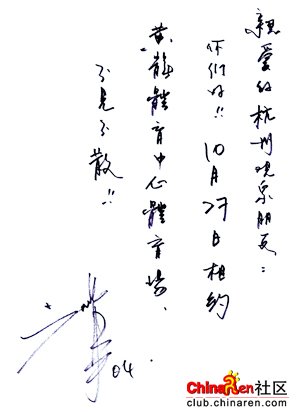 親爱的杭州歌迷朋友:
你们好!! 10月27日相约
黄龍體育中心體育場、
不見不散!!
04
ChinaRen社区
club.chinaren.com